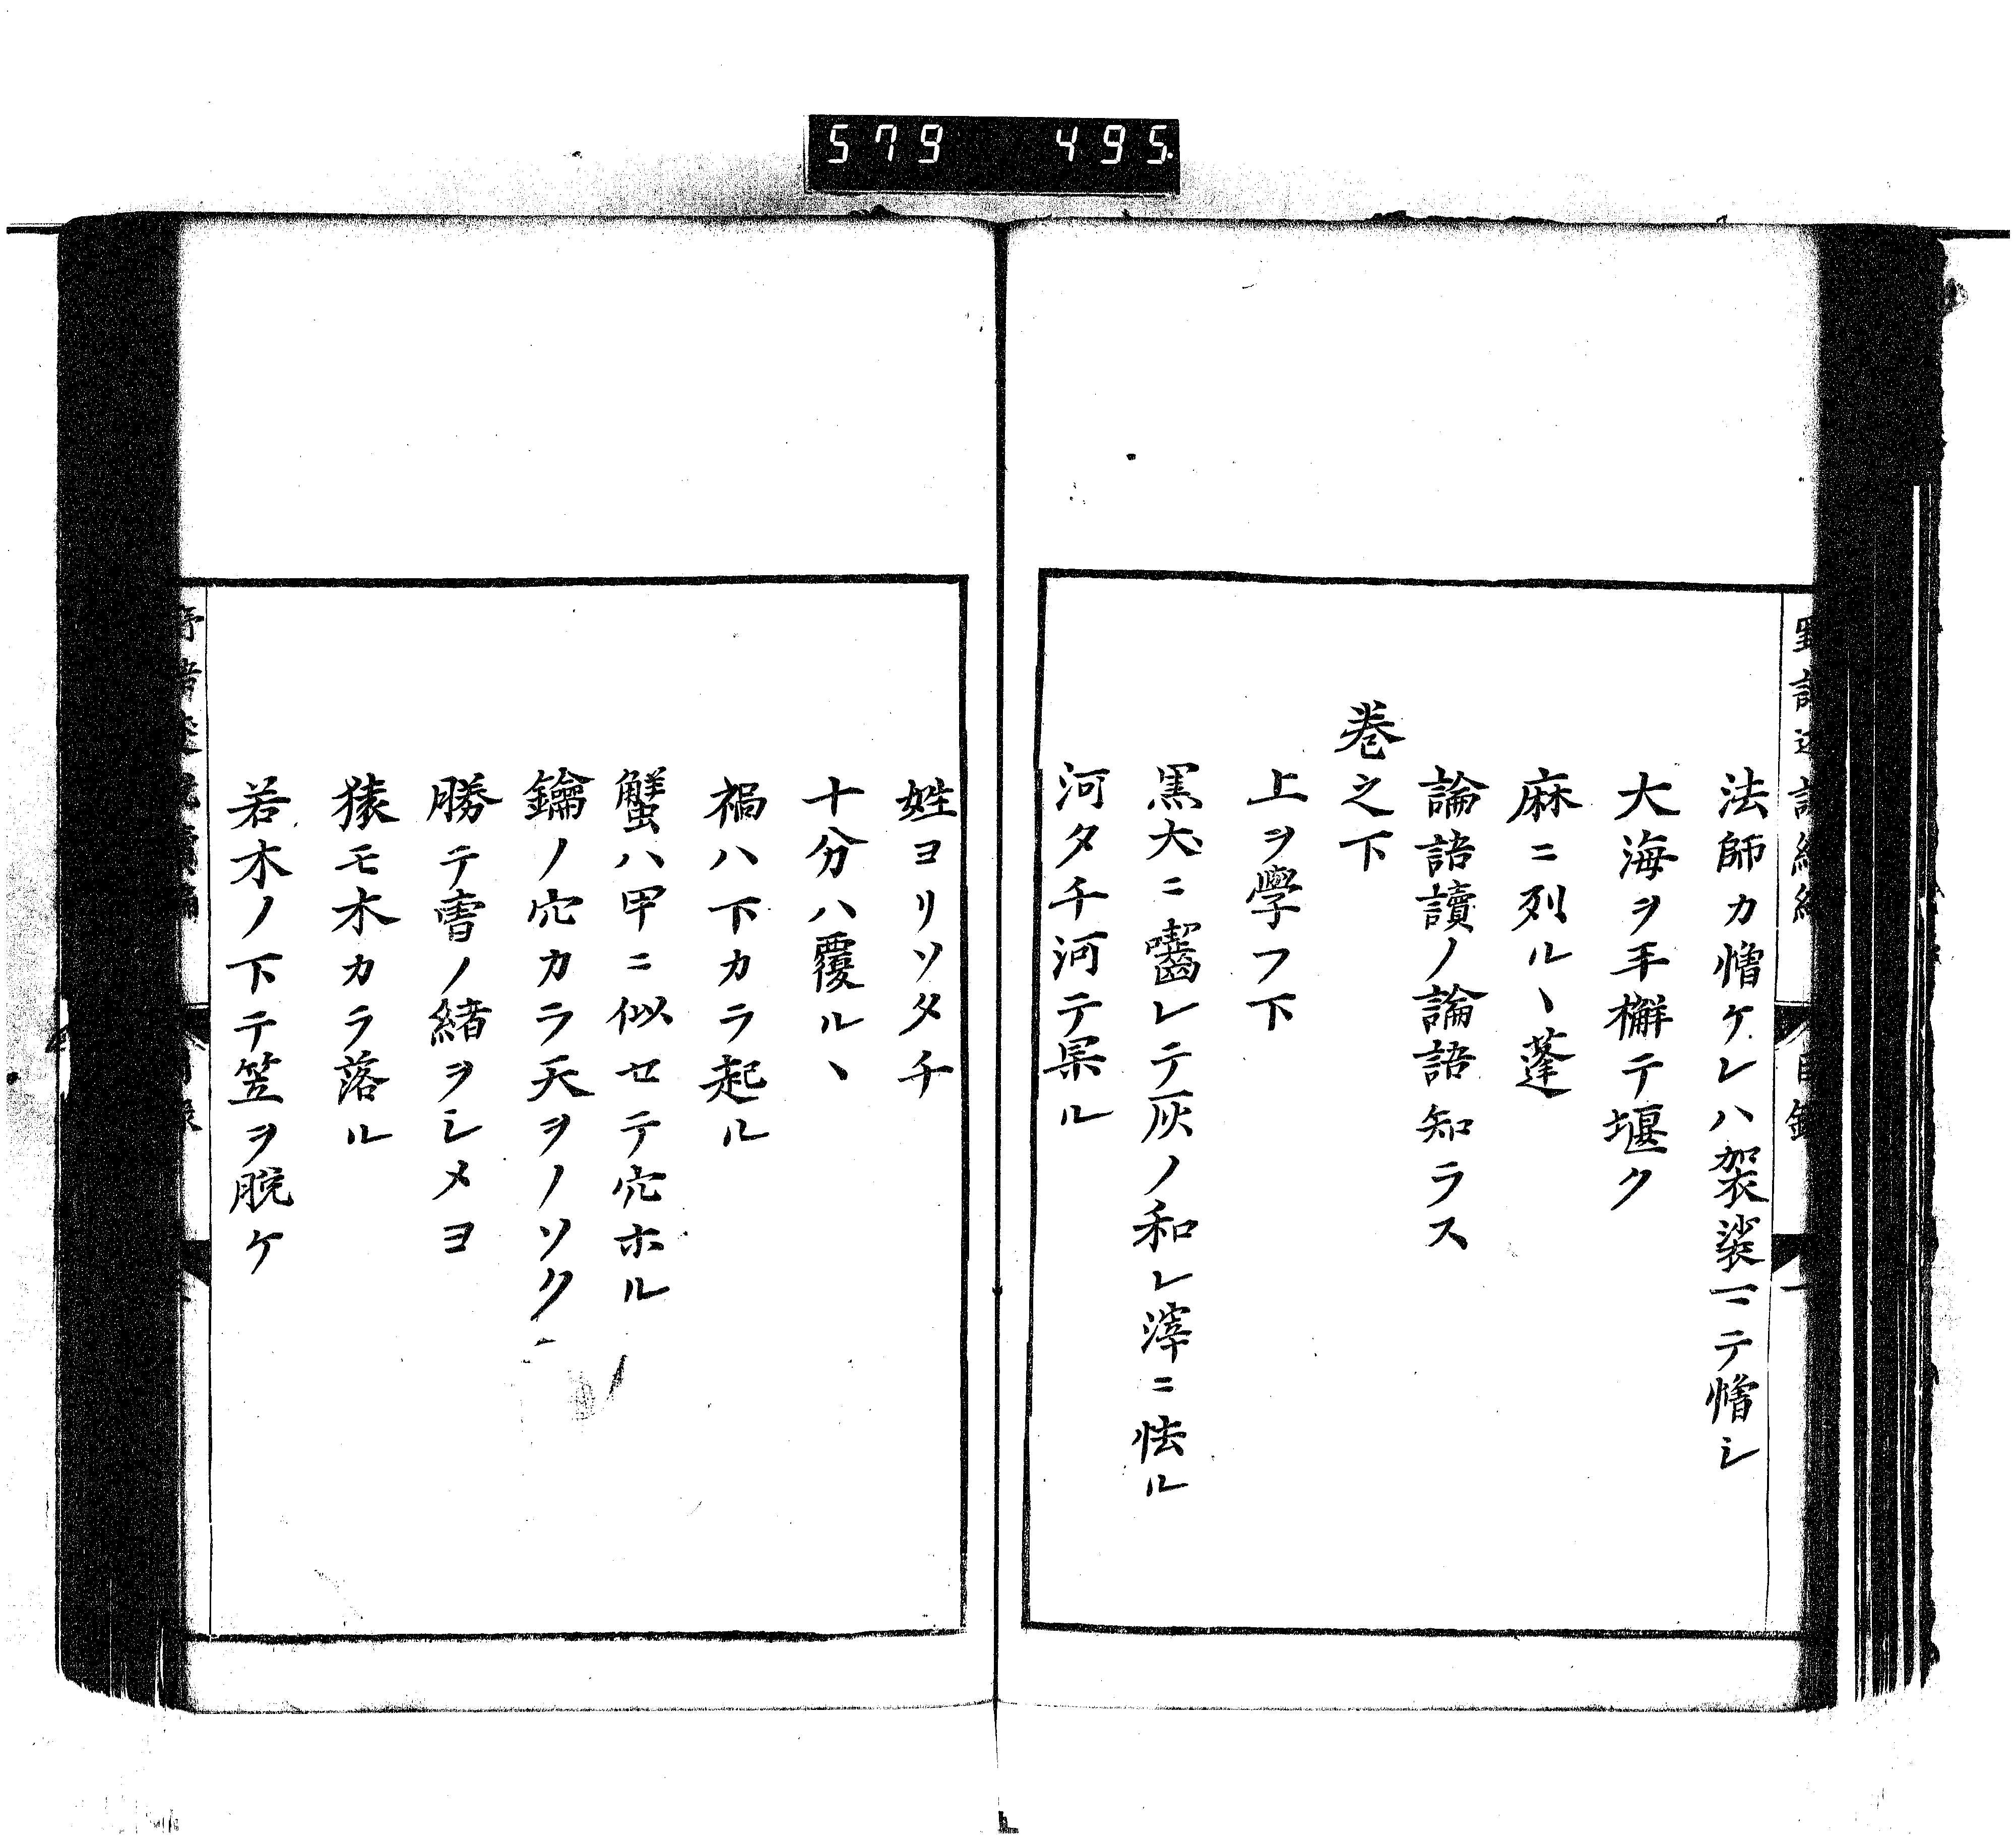 579 495
法師カ憎ケレハ袈裟マテ憎シ
大海ヲ手檞テ堰ク
麻ニ列ルヽ蓬
論語讀ノ論語知ラス
巻之下
上ヲ學フ下
黒犬ニ嚙レテ灰ノ和レ滓ニ怯ル
河タチ河テ果ル
姓ヨリソタチ
十分ハ覆ルヽ
禍ハ下カラ起ル
蟹ハ甲ニ似セテ穴ホル
鑰ノ穴カラ天ヲノソク
勝テ冑ノ緒ヲシメヨ
猿モ木カラ落ル
若木ノ下テ笠ヲ脱ケ